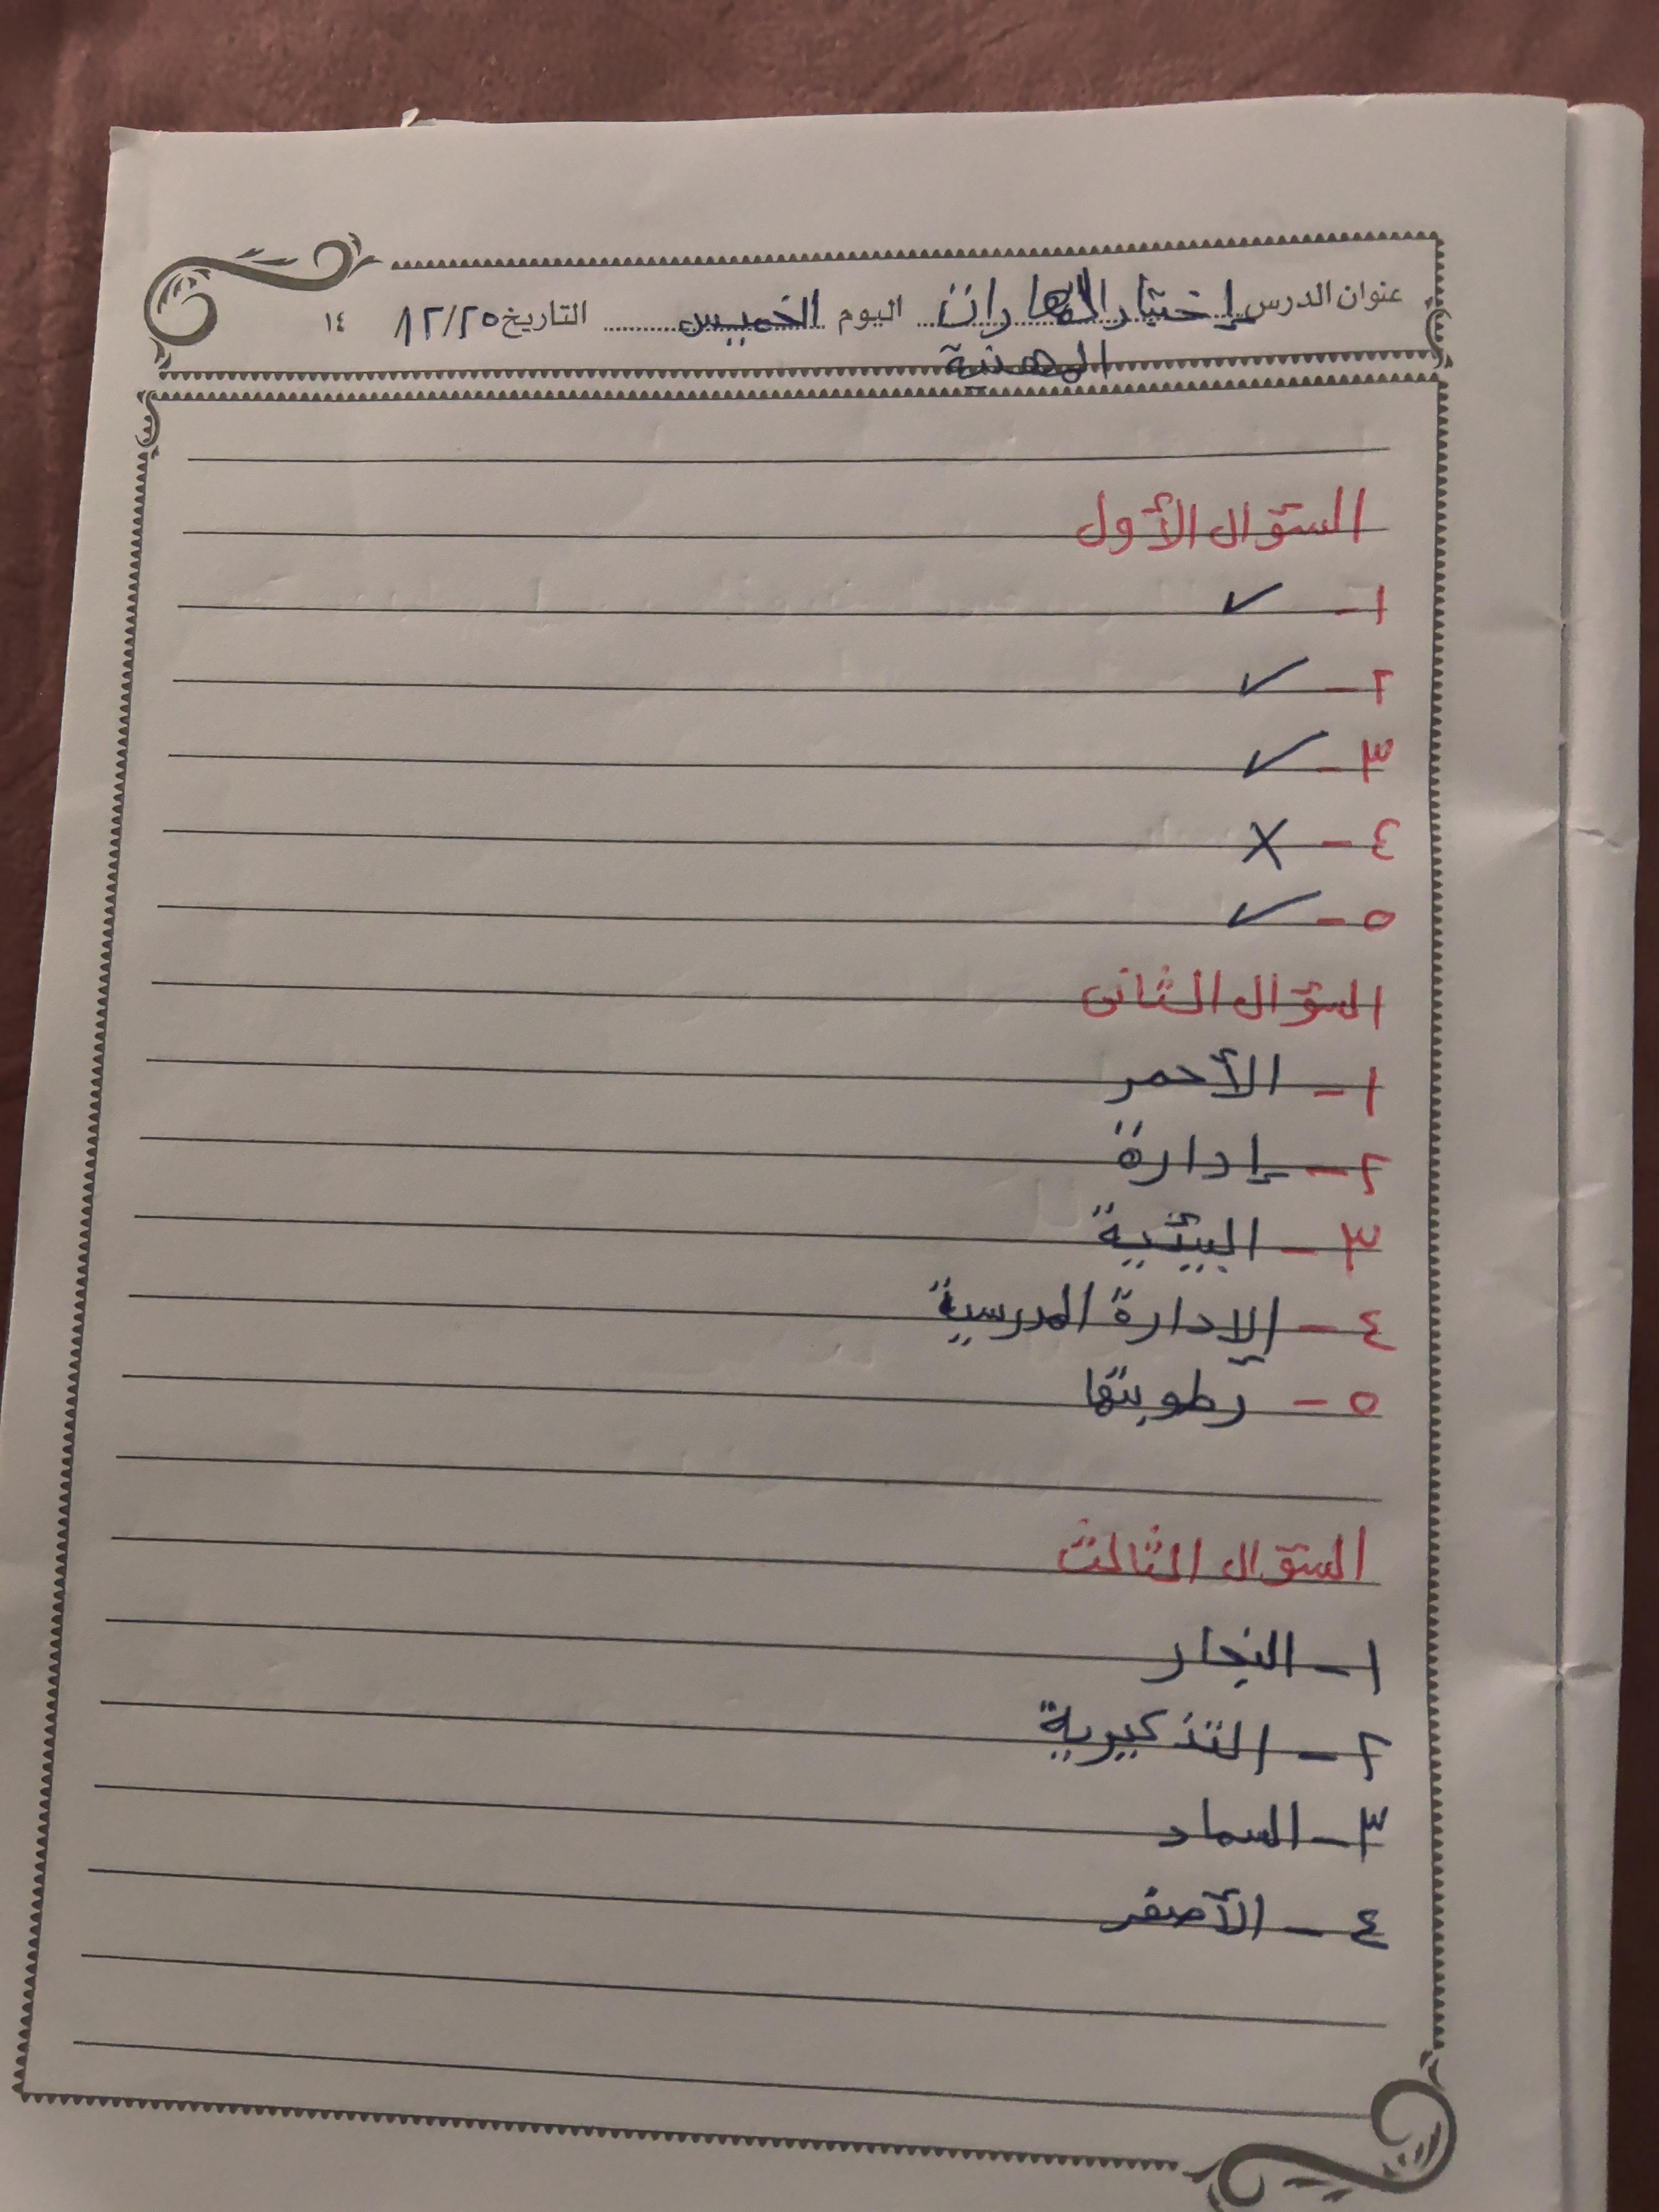 عنوان الدرس إختبار المهارات اليوم الخميس التاريخ ١٢/٢٥ ١٤
المهنية
السؤال الأول
١- ✓
٢- ✓
٣- ✓
٤- X
٥- ✓
السؤال الثانى
١- الأحمر
٢- إدارة
٣- البيئية
٤- الإدارة المدرسية
٥- رطوبتها
السؤال الثالث
١- النجار
٢- التذكيرية
٣- السماد
٤- الأصفر